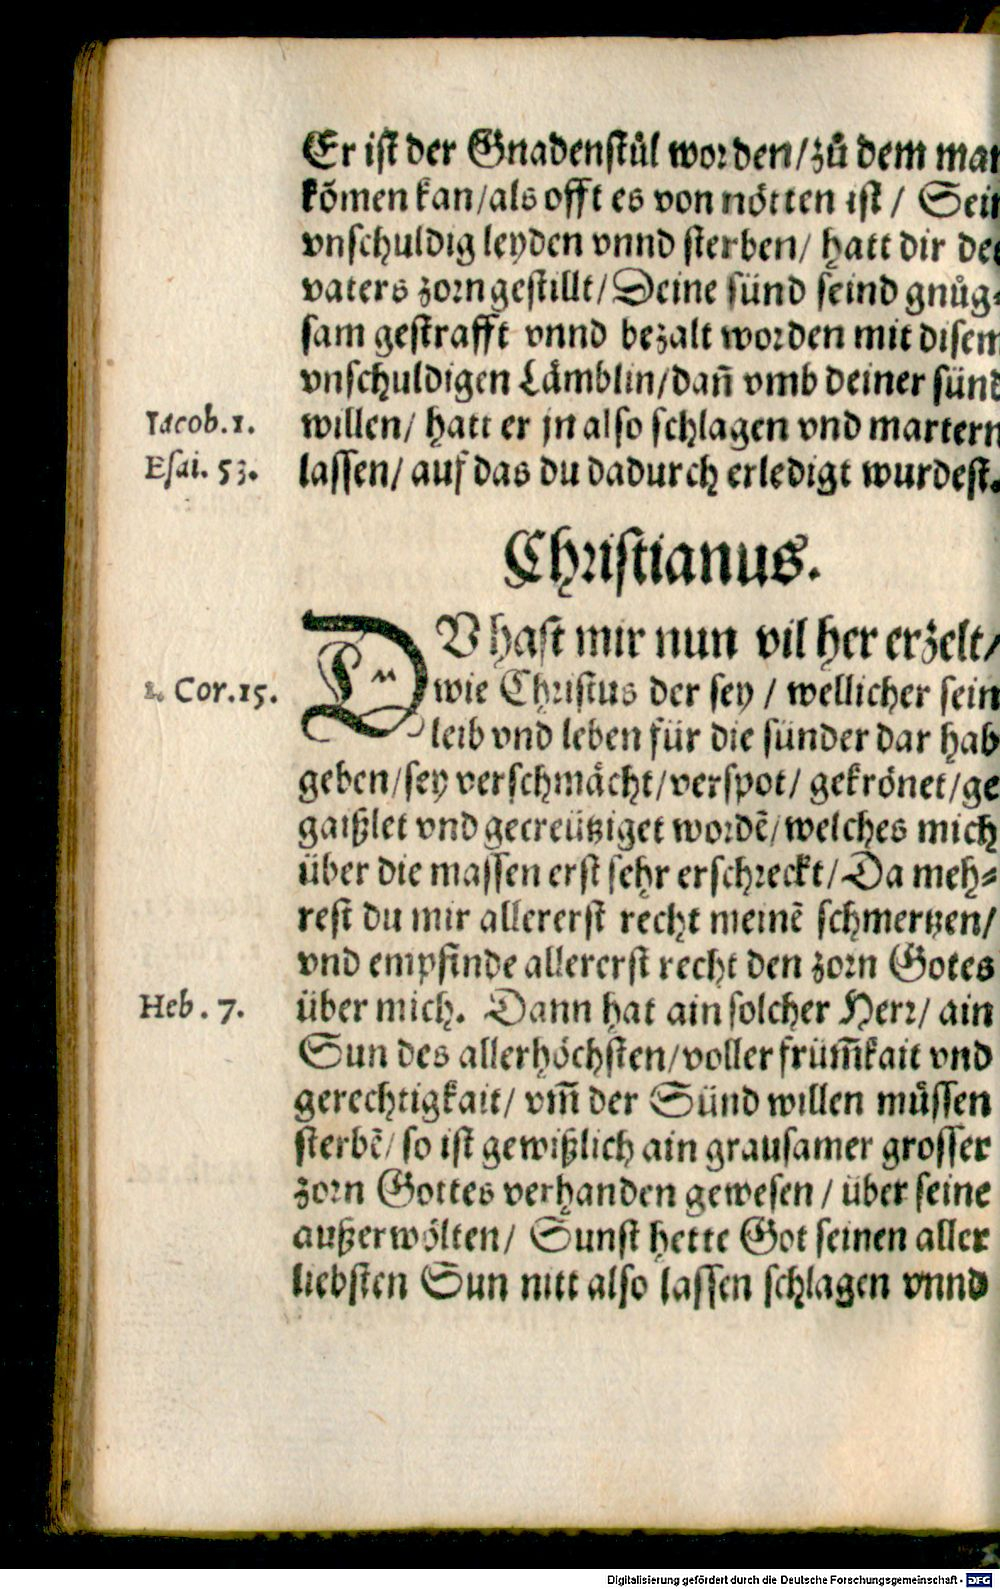 Er ist der Gnadenstůl worden/zů dem man
kōmen kan/als offt es von nötten ist / Sein
vnschuldig leyden vnnd sterben/ hatt dir des
vaters zorn gestillt/Deine sünd seind gnůg-
sam gestrafft vnnd bezalt worden mit disem
vnschuldigen Lämblin/dañ vmb deiner sünd
Iacob.1. willen/ hatt er jn also schlagen vnd martern
Esai. 53. lassen/ auf das du dadurch erledigt wurdest.
Christianus.
DV hast mir nun vil her erzelt/
1. Cor.15. wie Christus der sey / wellicher sein
leib vnd leben für die sünder dar hab
geben/sey verschmächt/verspot/ gekrönet/ge
gaißlet vnd gecreütziget wordē/welches mich
über die massen erst sehr erschreckt/Da meh-
rest du mir allererst recht meinē schmertzen/
vnd empfinde allererst recht den zorn Gotes
Heb. 7. über mich. Dann hat ain solcher Herr/ ain
Sun des allerhöchsten/voller früm̄kait vnd
gerechtigkait/ vm̄ der Sünd willen müssen
sterbē/so ist gewißlich ain grausamer grosser
zorn Gottes verhanden gewesen / über seine
außerwölten/ Sunst hette Got seinen aller
liebsten Sun nitt also lassen schlagen vnnd
Digitalisierung gefördert durch die Deutsche Forschungsgemeinschaft - DFG